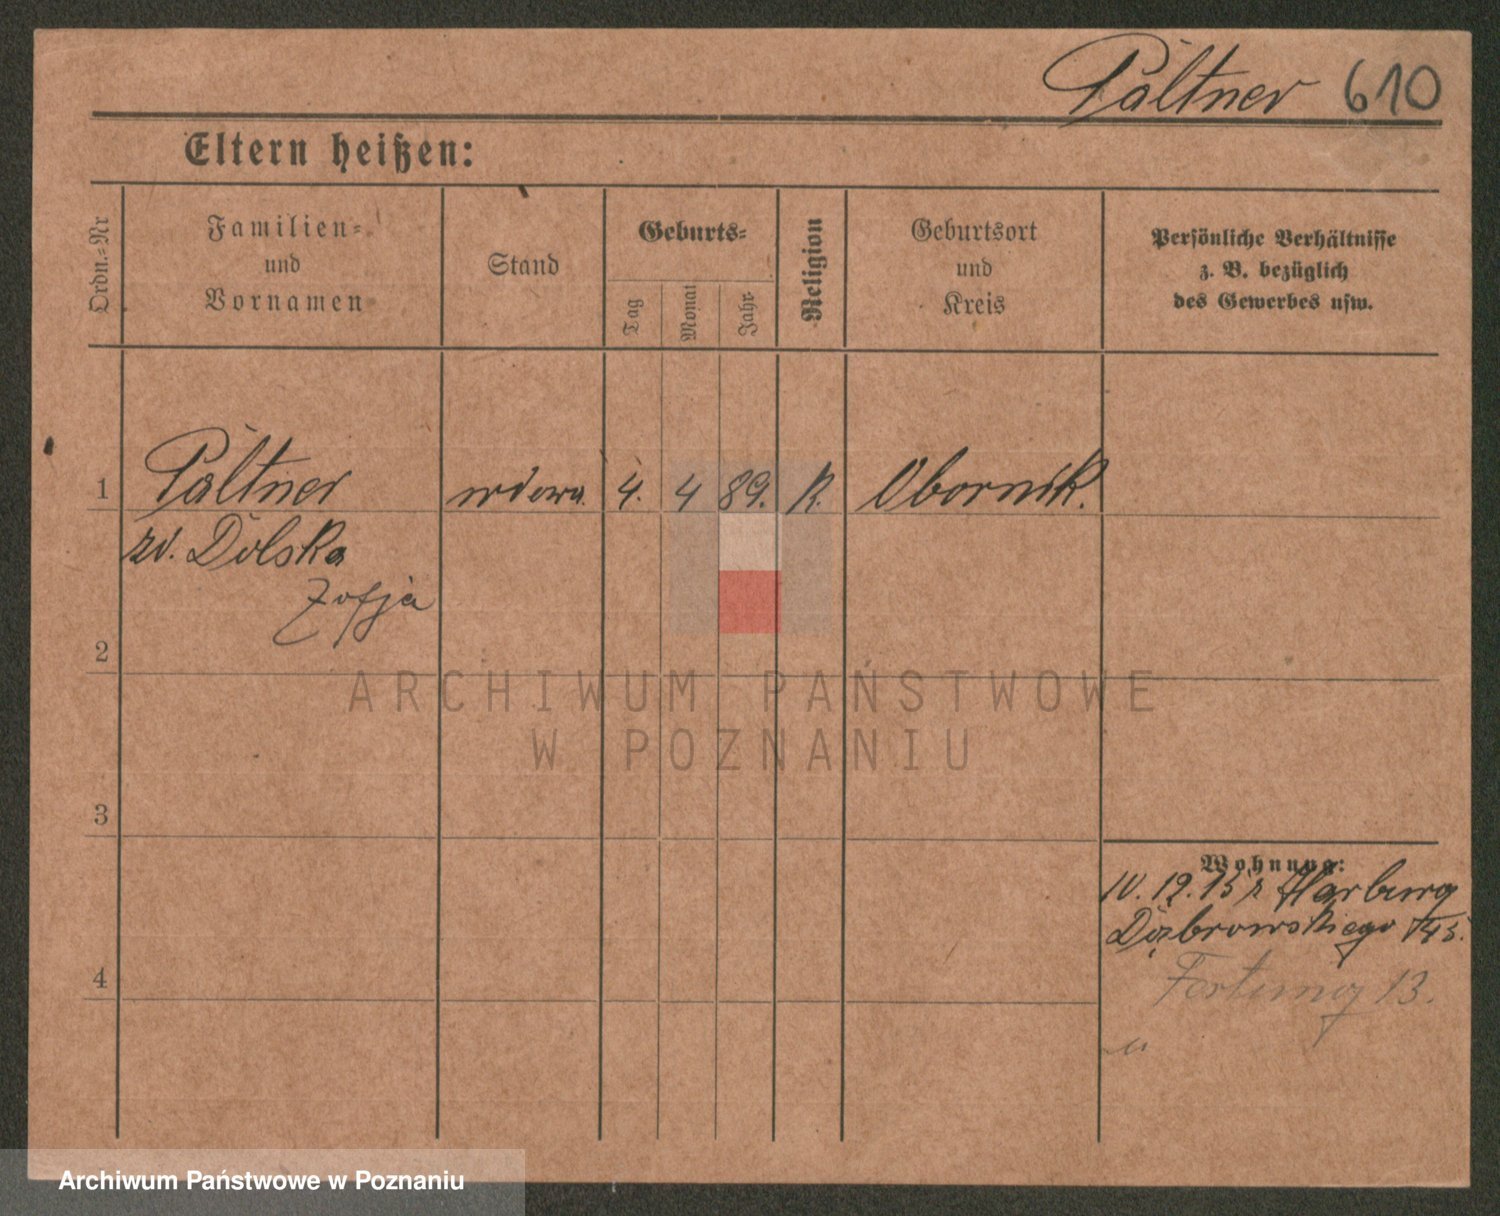 Pältner 610
Eltern heißen:
Ordn.=Nr
Familien=
und
Vornamen
Stand
Geburts=
Tag
Monat
Jahr
Religion
Geburtsort
und
Kreis
Persönliche Verhältnisse
z. B. bezüglich
des Gewerbes usw.
1 Pältner wdowa 4. 4 89. R. Obornik.
zd. Dolska
Zofja
2
ARCHIWUM PAŃSTWOWE
W POZNANIU
3
Wohnung:
10. 12. 15 z Harburg
Dąbrowskiego
4
13.
Archiwum Państwowe w Poznaniu